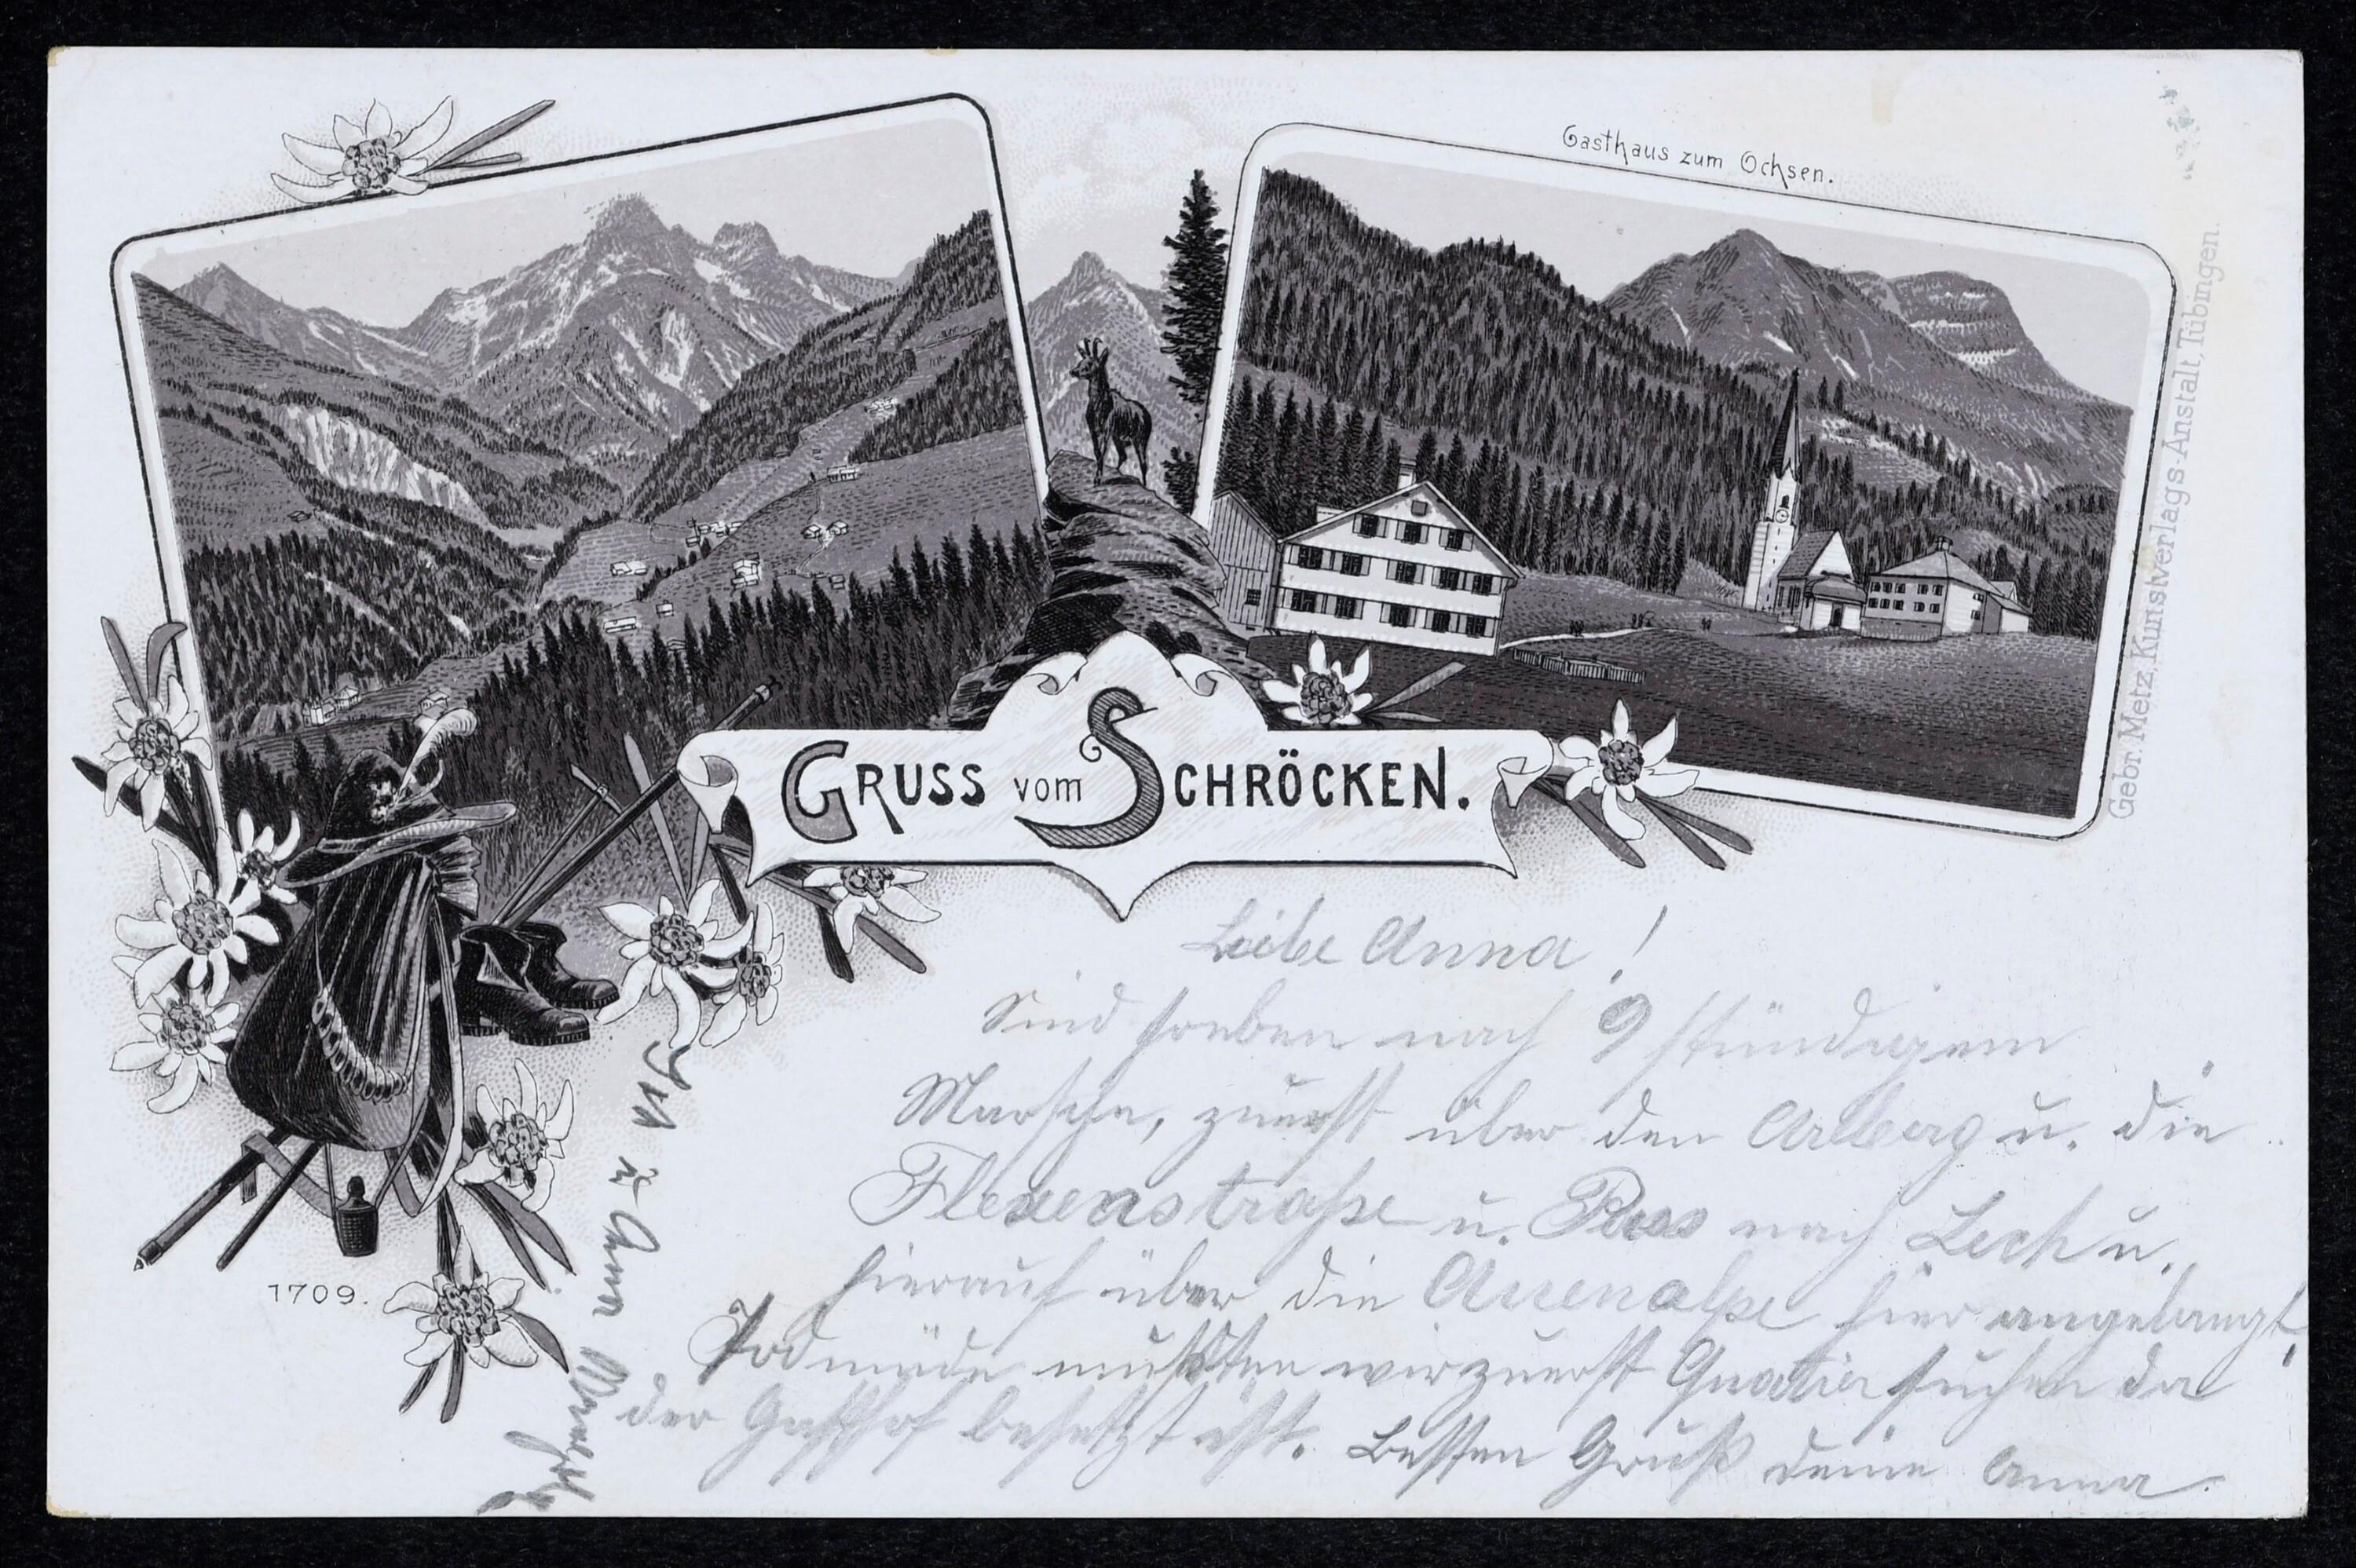 Gasthaus zum Ochsen.
Gebr. Metz, Kunstverlags-Anstalt, Tübingen.
GRUSS vom SCHRÖCKEN.
1709.
Liebe Anna!
Sind soeben nach 9 stündigem
Marsche, zuerst über den Arlberg u. die
Flexenstraße u. Pass nach Lech u.
hierauf über die Auenalpe hier angelangt,
Todmüde mußten wir zuerst Quatier suchen da
der Gasthof besetzt ist. Besten Gruß deine Anna.